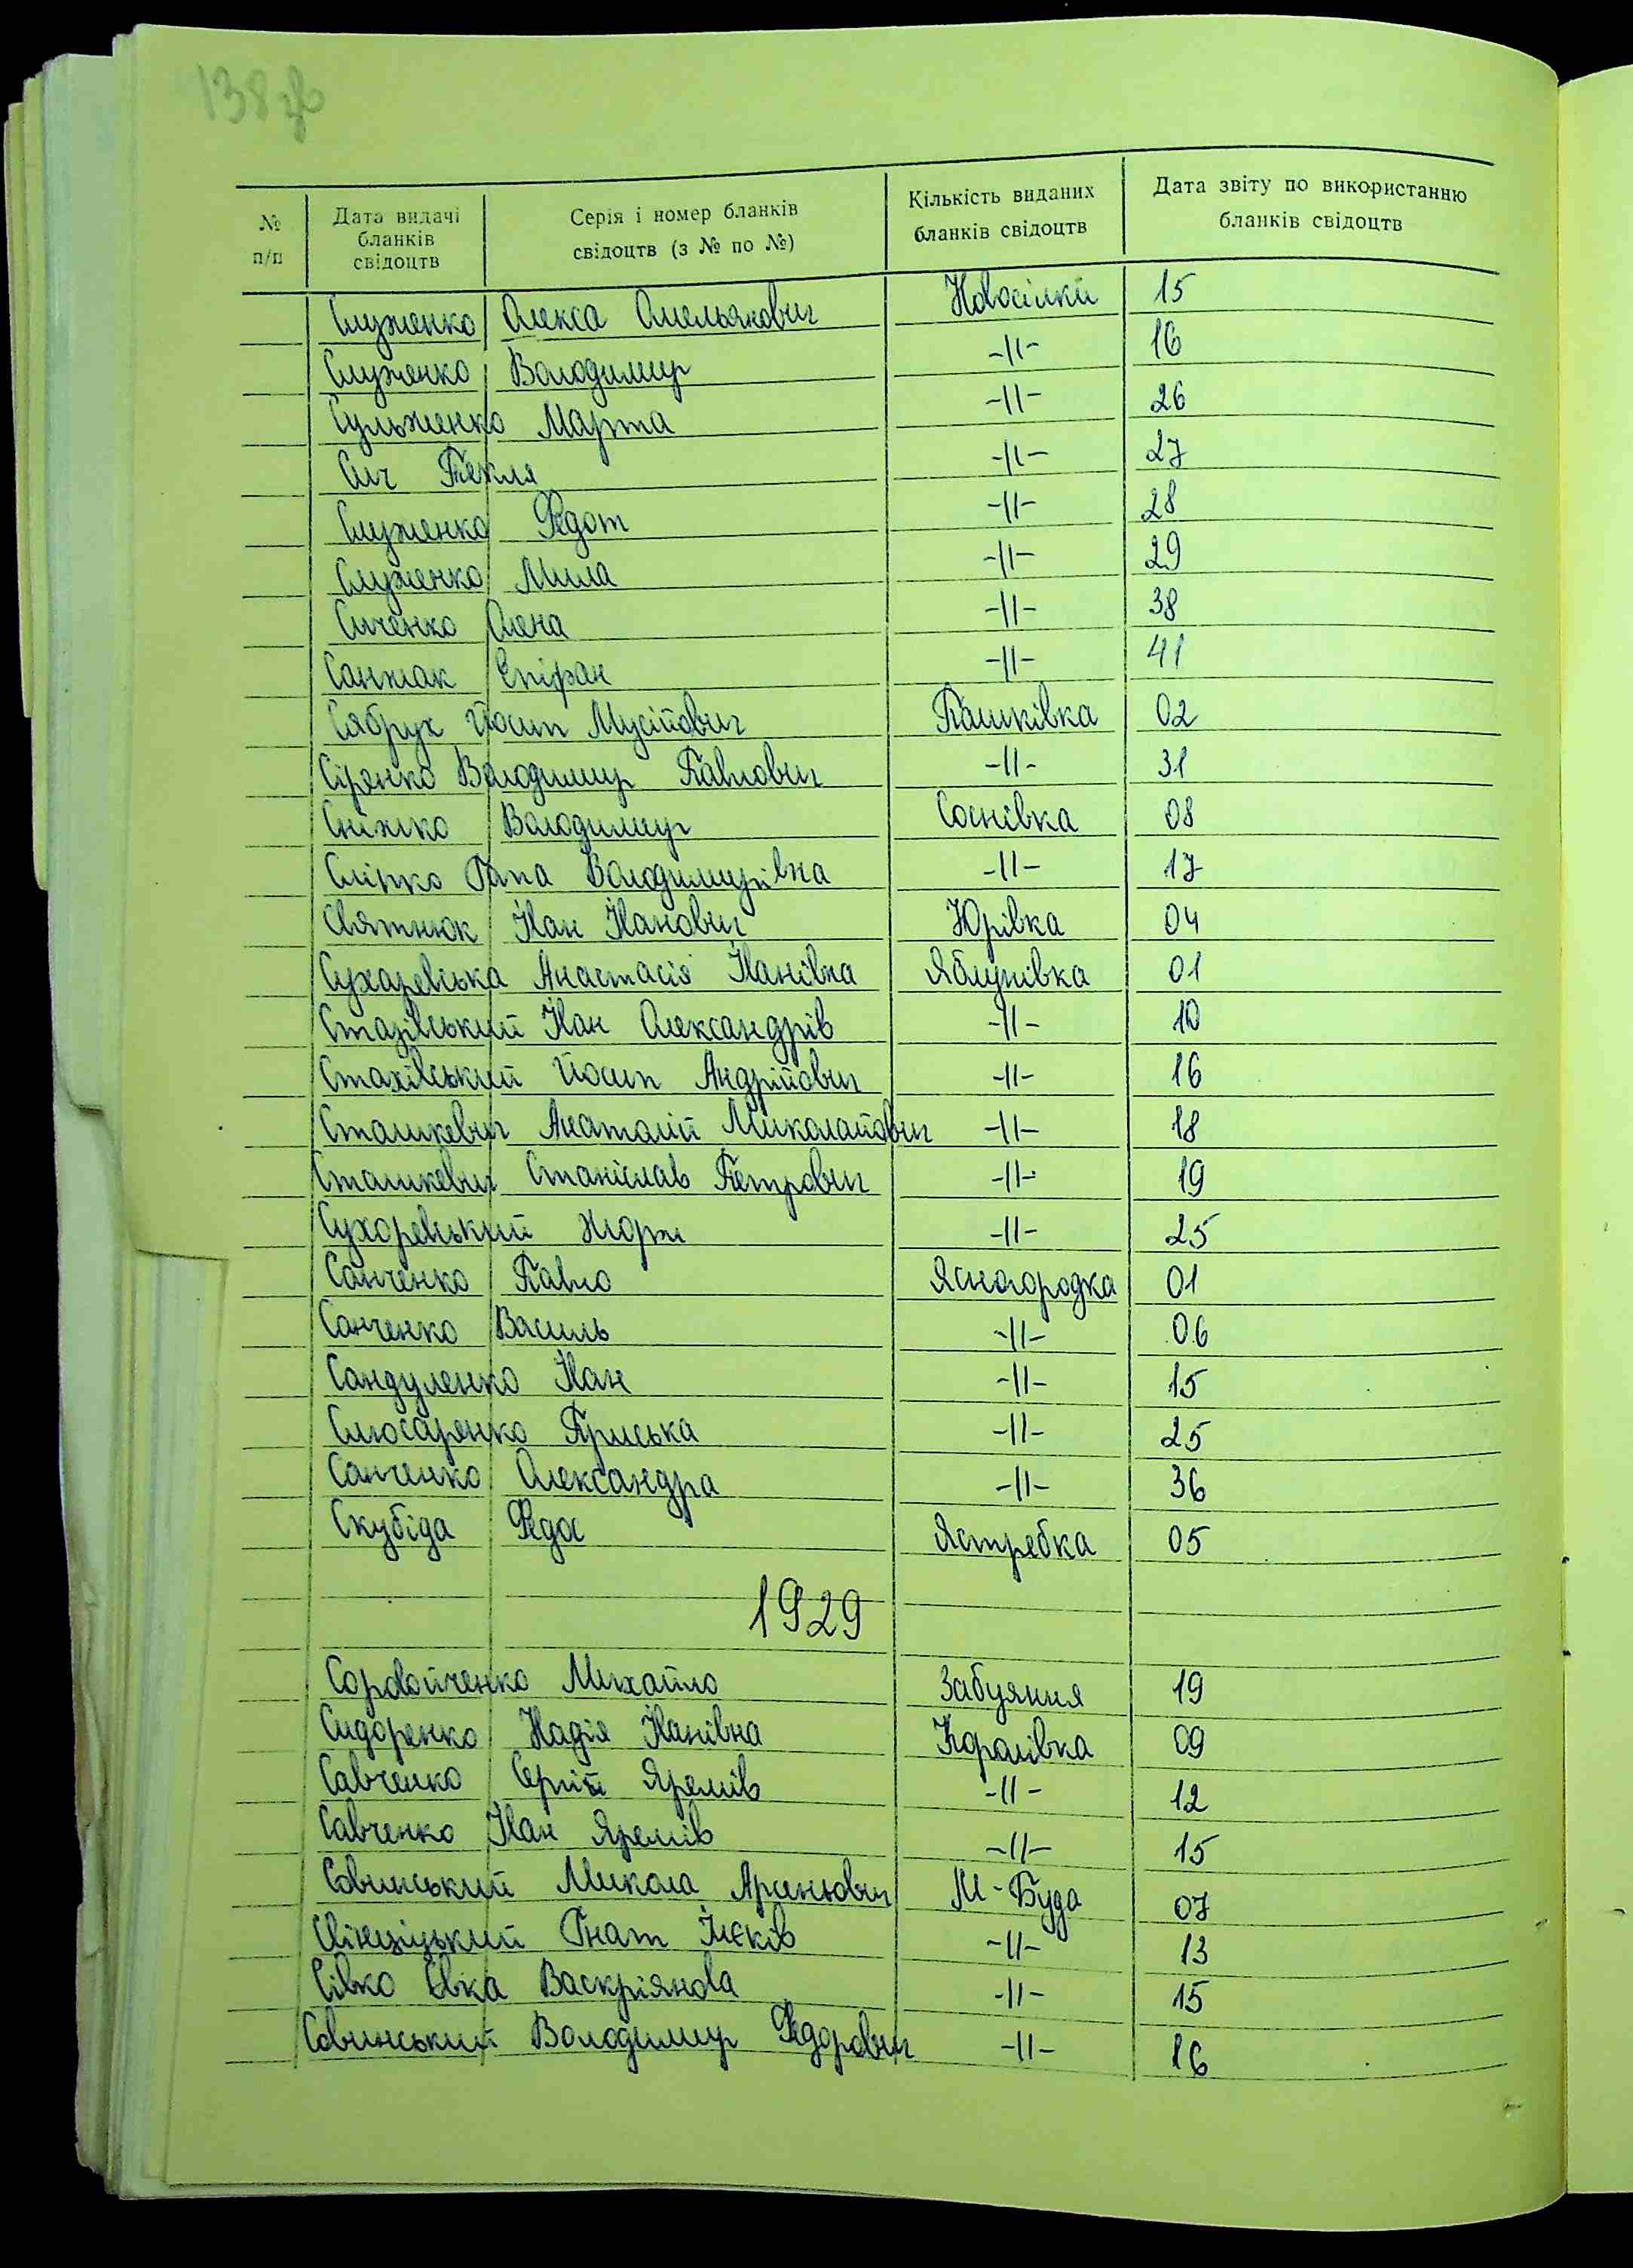 138зв
№ п/п
Дата видачі бланків свідоцтв
Серія і номер бланків свідоцтв (з № по №)
Кількість виданих бланків свідоцтв
Дата звіту по використанню бланків свідоцтв
Служенко Олекса Омельянович Новосілки 15
Служенко Володимир -||- 16
Сульженко Марта -||- 26
Сич Текля -||- 27
Служенко Федот -||- 28
Служенко Мила -||- 29
Сиченко Олена -||- 38
Санжак Епіфан -||- 41
Сябрук Йосип Мусійович Пашківка 02
Сіренко Володимир Павлович -||- 31
Сніжко Володимир Соснівка 08
Слінко Гапа Володимирівна -||- 17
Святнюк Іван Іванович Юрівка 04
Сухаревська Анастасія Іванівна Яблунівка 01
Стахівський Іван Олександрів -||- 10
Стахівський Йосип Андрійович -||- 16
Сташкевич Анатолій Миколайович -||- 18
Сташкевич Станіслав Петрович -||- 19
Сухоревський Жорж -||- 25
Санченко Павло Ясногородка 01
Санченко Василь -||- 06
Сандуленко Іван -||- 15
Слюсаренко Пріська -||- 25
Санченко Олександра -||- 36
Скубіда Федос Ястребка 05
1929
Михайло Забуяння 19
Сидоренко Надія Іванівна Королівка 09
Савченко Сергій Яремів -||- 12
Савченко Іван Яремів -||- 15
Совинський Микола Арсенович М-Буда 07
Гнат -||- 13
Сівко Євка -||- 15
Совинський Володимир Федорович -||- 16